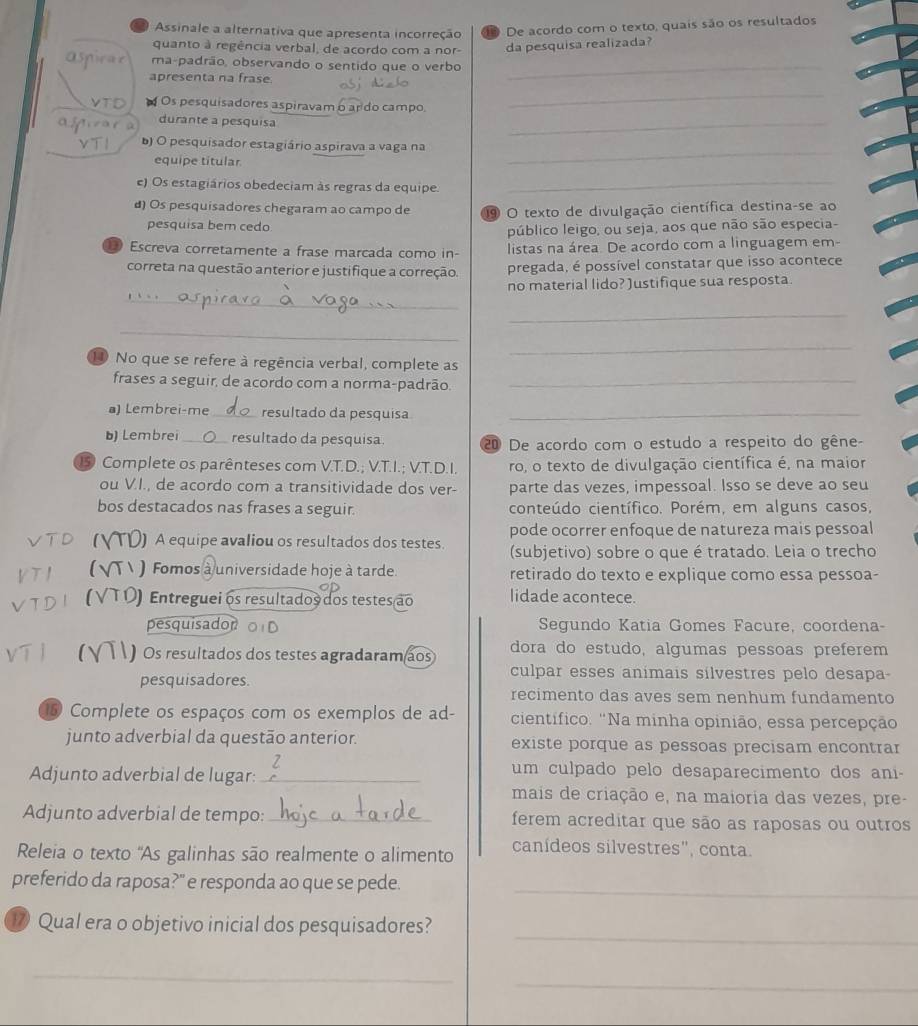 Assinale a alternativa que apresenta incorreção
quanto à regência verbal, de acordo com a nor-
aspirar ma-padrão, observando o sentido que o verbo
apresenta na frase.
VTD Os pesquisadores aspiravam o ar do campo,
aspirar a durante a pesquisa
VTI b) O pesquisador estagiário aspirava a vaga na
equipe titular.
c) Os estagiários obedeciam às regras da equipe.
d) Os pesquisadores chegaram ao campo de
pesquisa bem cedo
13 Escreva corretamente a frase marcada como in-
correta na questão anterior e justifique a correção.
.... aspirava à vaga ...
14 No que se refere à regência verbal, complete as
frases a seguir, de acordo com a norma-padrão.
a) Lembrei-me do resultado da pesquisa.
b) Lembrei o resultado da pesquisa.
15 Complete os parênteses com V.T.D.; V.T.I.; V.T.D.I.
ou V.I., de acordo com a transitividade dos ver-
bos destacados nas frases a seguir.
VTD (VTD) A equipe avaliou os resultados dos testes.
VTI (VTI) Fomos à universidade hoje à tarde.
OD
VTDI (VTD) Entreguei os resultados dos testes ao
pesquisador. OID
VTI (VTI) Os resultados dos testes agradaram aos
pesquisadores.
16 Complete os espaços com os exemplos de ad-
junto adverbial da questão anterior.
Adjunto adverbial de lugar: ?
Adjunto adverbial de tempo: hoje a tarde
Releia o texto "As galinhas são realmente o alimento
preferido da raposa?" e responda ao que se pede.
17 Qual era o objetivo inicial dos pesquisadores?
18 De acordo com o texto, quais são os resultados
da pesquisa realizada?
19 O texto de divulgação científica destina-se ao
público leigo, ou seja, aos que não são especia-
listas na área. De acordo com a linguagem em-
pregada, é possível constatar que isso acontece
no material lido? Justifique sua resposta.
20 De acordo com o estudo a respeito do gêne-
ro, o texto de divulgação científica é, na maior
parte das vezes, impessoal. Isso se deve ao seu
conteúdo científico. Porém, em alguns casos,
pode ocorrer enfoque de natureza mais pessoal
(subjetivo) sobre o que é tratado. Leia o trecho
retirado do texto e explique como essa pessoa-
lidade acontece.
Segundo Katia Gomes Facure, coordena-
dora do estudo, algumas pessoas preferem
culpar esses animais silvestres pelo desapa-
recimento das aves sem nenhum fundamento
científico. "Na minha opinião, essa percepção
existe porque as pessoas precisam encontrar
um culpado pelo desaparecimento dos ani-
mais de criação e, na maioria das vezes, pre-
ferem acreditar que são as raposas ou outros
canídeos silvestres", conta.